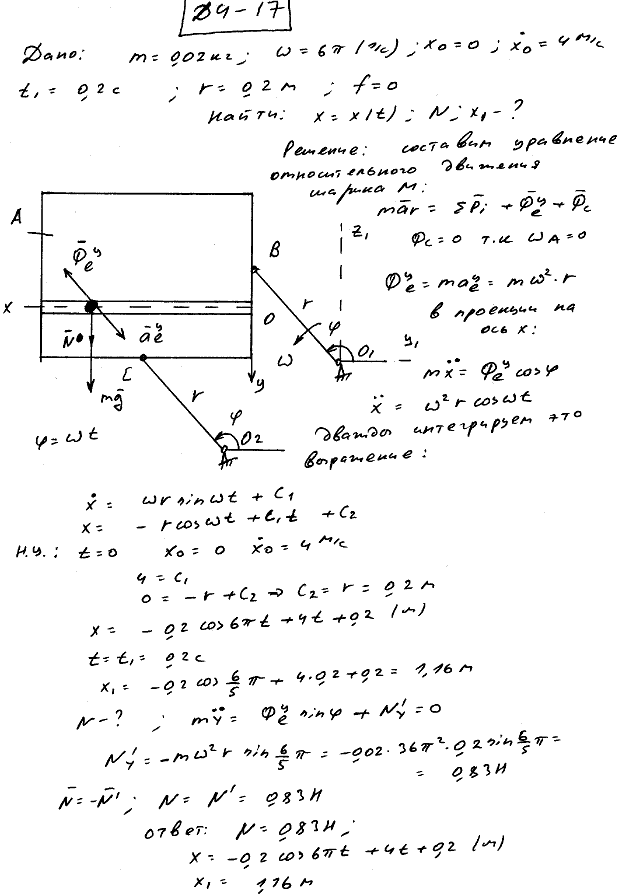 Д4-17
Дано: m = 0,02 кг; ω = 6π (1/с); x₀ = 0; ẋ₀ = 4 м/с
t₁ = 0,2 с ; r = 0,2 м ; f = 0
Найти: x = x(t); N; x₁ - ?
Решение: составим уравнение
относительного движения
шарика М:
mā_r = ΣP̄ᵢ + Φ̄ₑᵘ + Φ̄c
Φc = 0 т.к ω_A = 0
Φₑᵘ = maₑᵘ = mω²·r
в проекции на
ось x:
mẍ = Φₑᵘ cosφ
ẍ = ω² r cosωt
A
Φ̄ₑᵘ
B
z₁
x
O
r
φ
N̄
āₑᵘ
ω
O₁
y₁
E
y
mḡ
r
φ
O₂
φ = ωt
дважды интегрируем это
выражение:
ẋ = ωr sinωt + C₁
x = - r cosωt + C₁t + C₂
н.у.: t = 0 x₀ = 0 ẋ₀ = 4 м/с
4 = C₁
0 = -r + C₂ ⇒ C₂ = r = 0,2 м
x = -0,2 cos6πt + 4t + 0,2 (м)
t = t₁ = 0,2 с
x₁ = -0,2 cos 6/5 π + 4·0,2 + 0,2 = 1,16 м
N - ? ; mÿ = Φₑᵘ sinφ + N'y = 0
N'y = -mω² r sin 6/5 π = -0,02·36π²·0,2 sin 6/5 π =
= 0,83 Н
N̄ = -N̄'; N = N' = 0,83 Н
ответ: N = 0,83 Н;
x = -0,2 cos6πt + 4t + 0,2 (м)
x₁ = 1,16 м